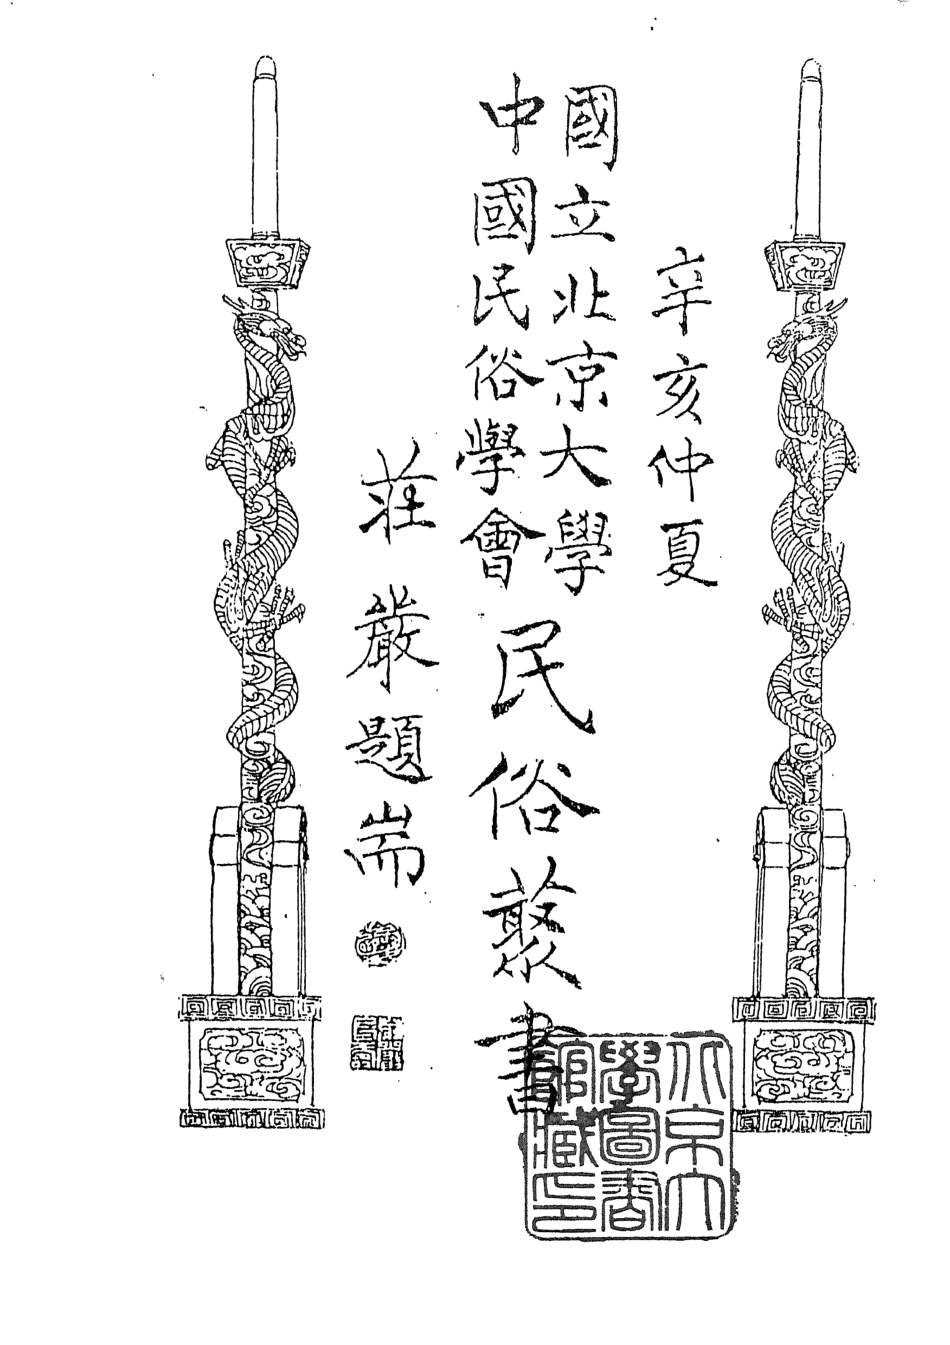 辛亥仲夏
國立北京大學
中國民俗學會
民俗叢書
莊嚴題耑
北京大
學圖書
館藏印